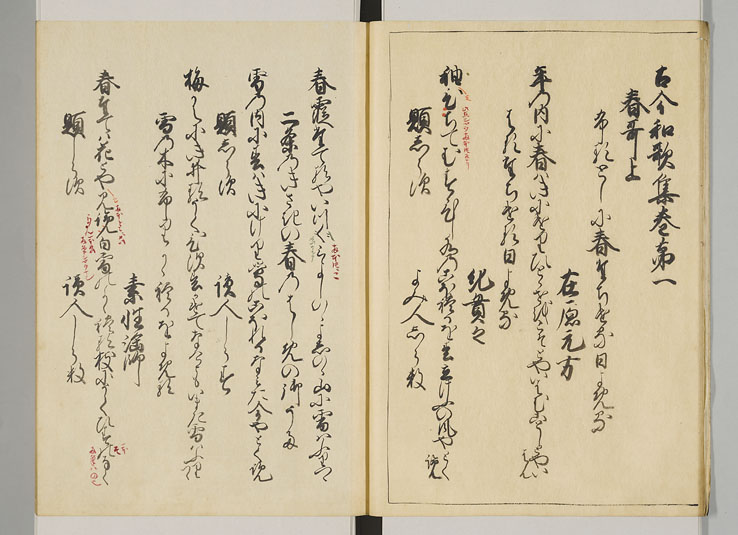 古今和歌集巻第一
春哥上
ふるとしに春たちける日よめる
在原元方
年の内に春はきにけりひとゝせをこそとやいはむことしとやいはん
はるたちける日よめる
紀貫之
袖ひちてむすひし水のこほれるを春立けふの風やとく覧
題しらす　よみ人しらす
春霞たてるやいつくみよしのゝよしのゝ山に雪はふりつゝ
二条のきさきの春のはしめの御うた
雪の内に春はきにけり鶯のこほれるなみた今やとく覧
題しらす　読人しらす
梅かえにきゐるうくひす春かけてなけともいまた雪はふりつゝ
雪の木にふりかゝれるをよめる
素性法師
春たては花とや見覧白雪のかゝれる枝にうくひすのなく
題しらす　読人しらす